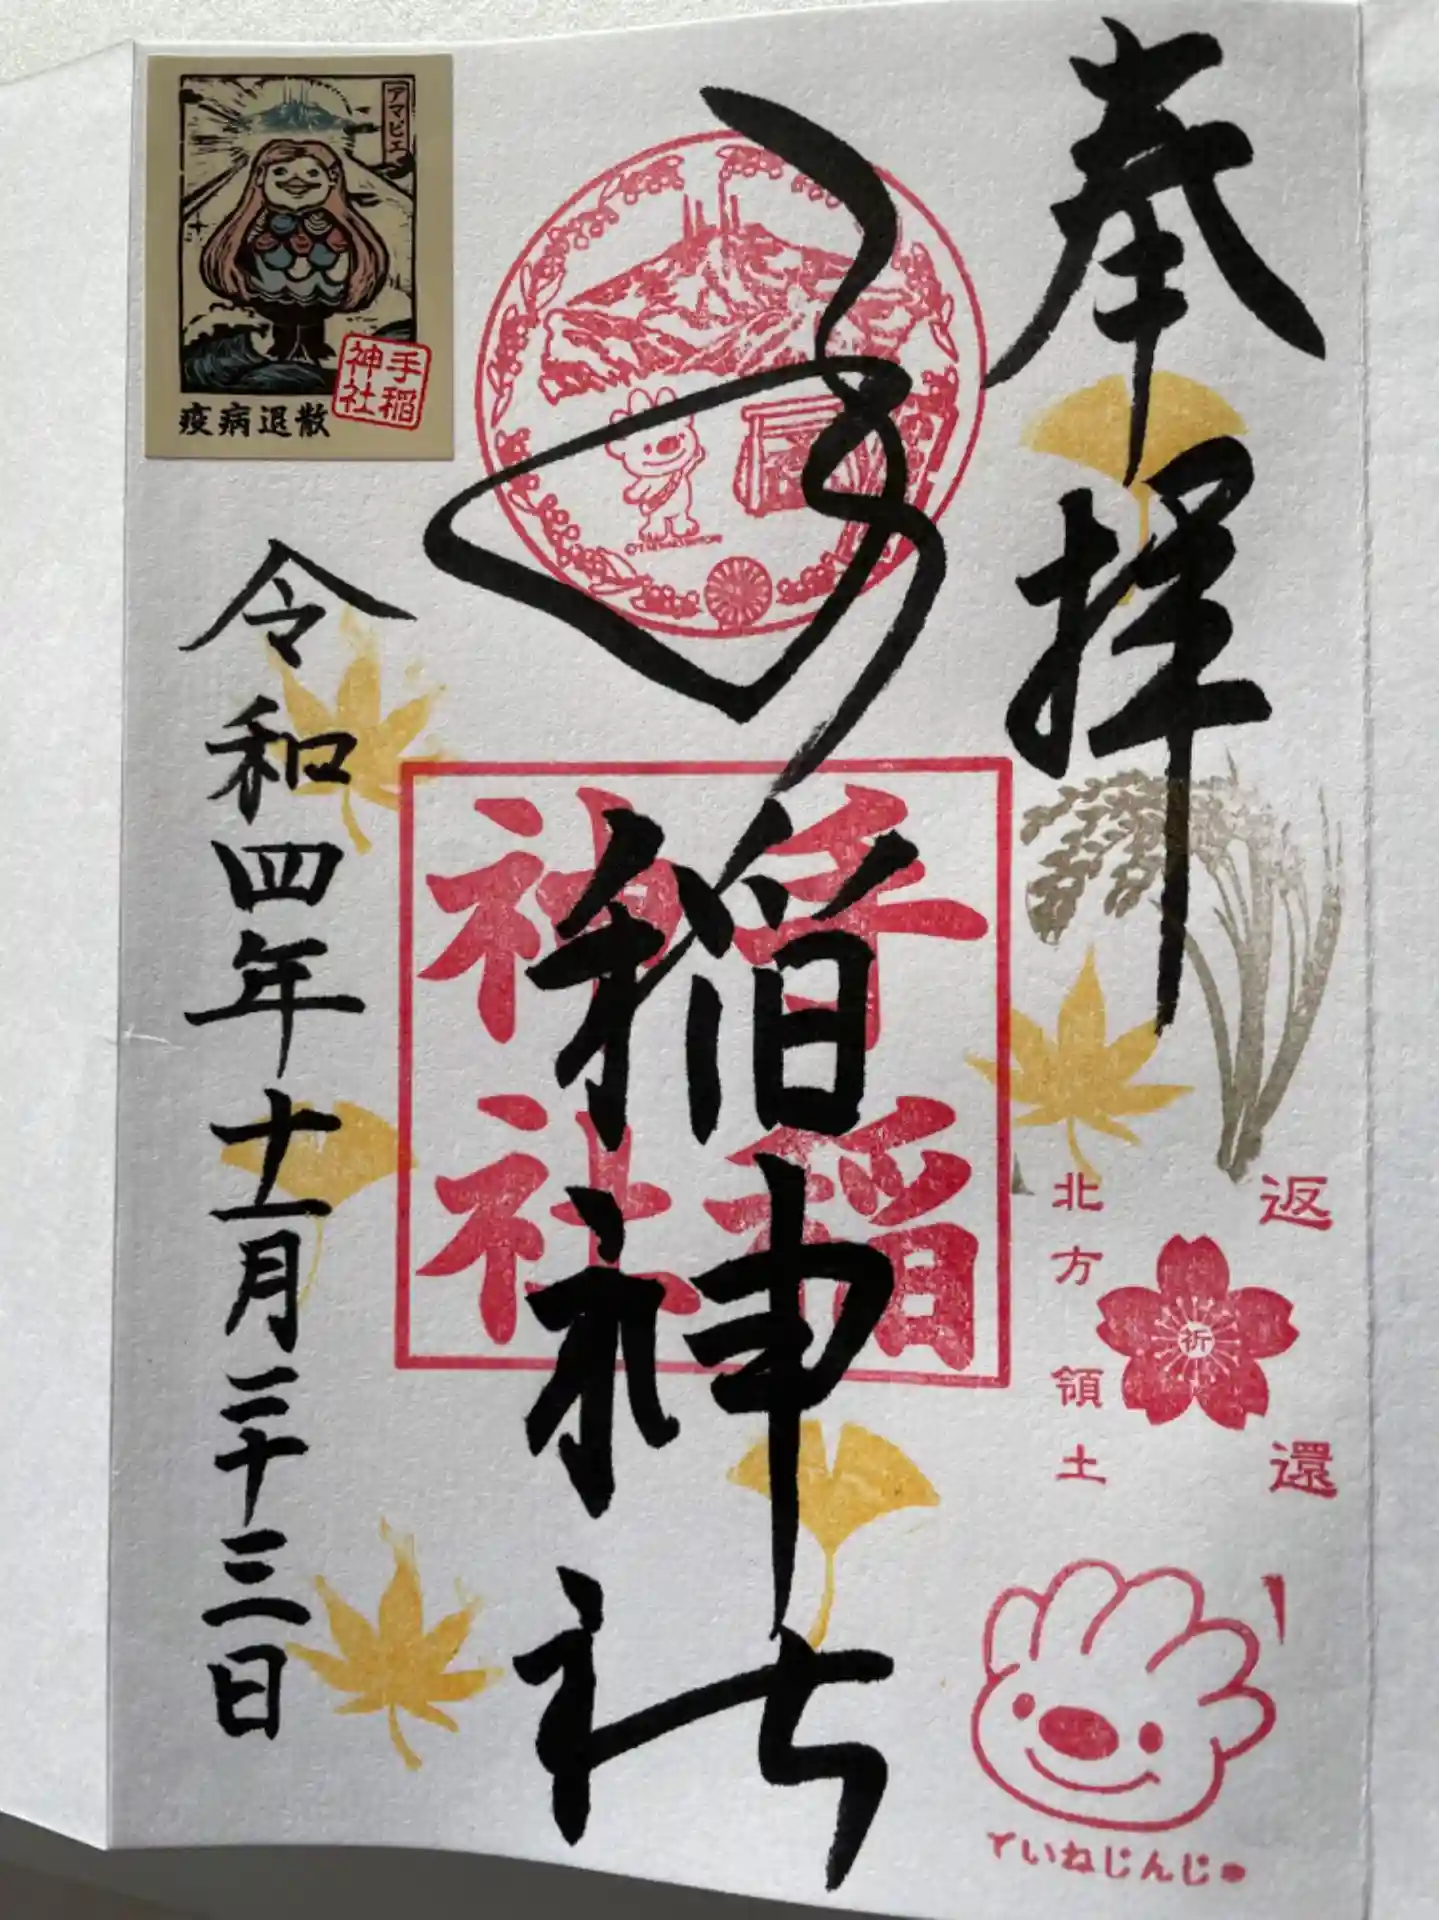 奉拝
手稲神社
手稲
神社
北方領土
返還
祈
ていねじんじゃ
令和四年十一月二十三日
アマビエ
手稲
神社
疫病退散